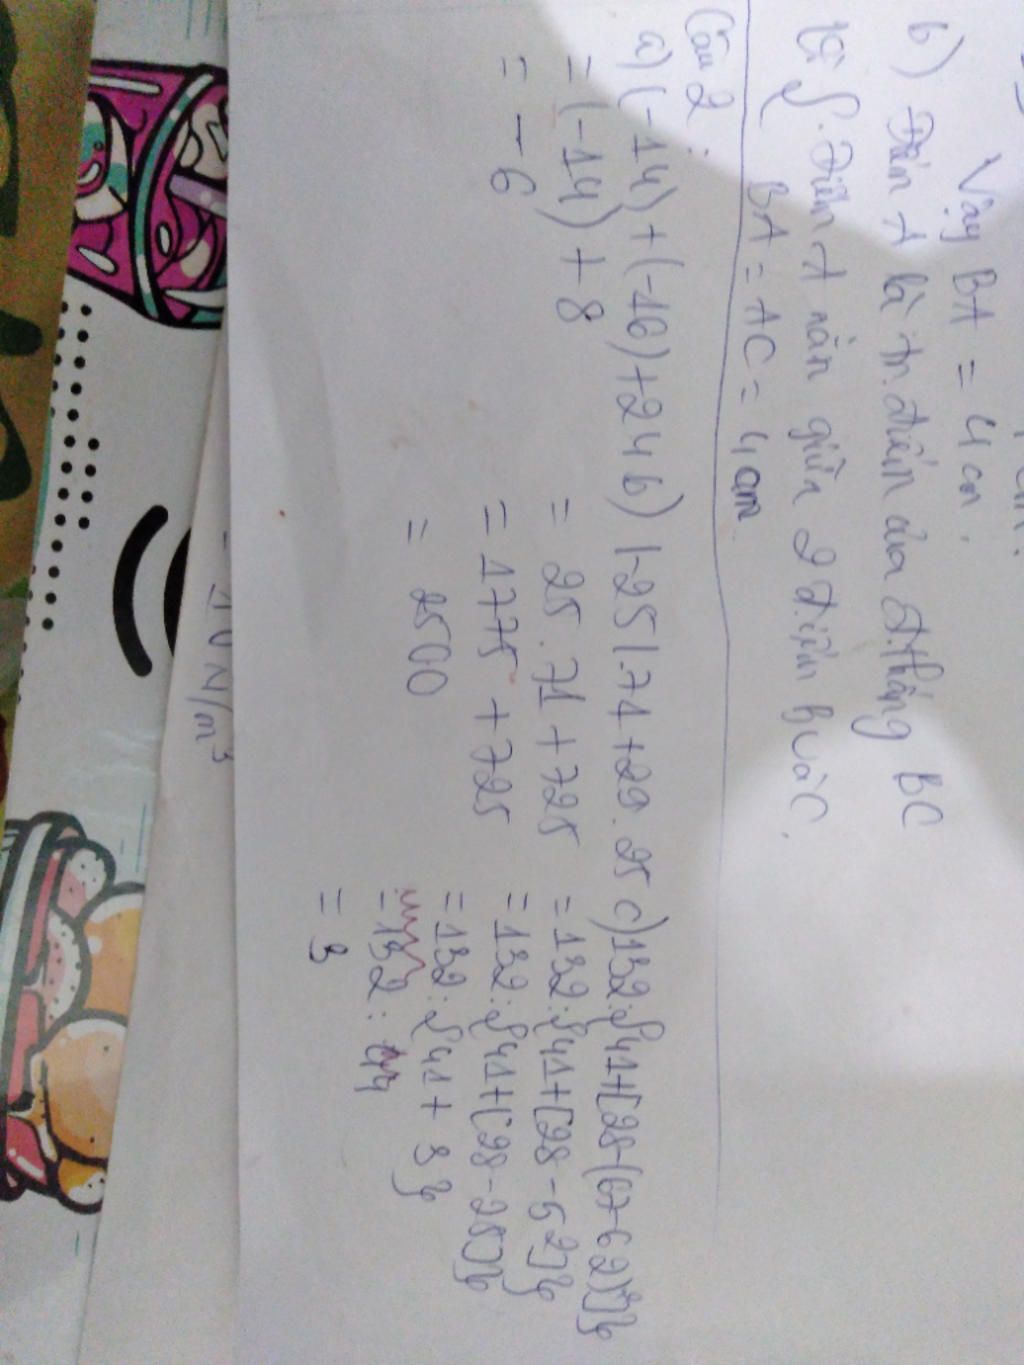 Vậy BA = 4 cm.
b) Điểm A là tr.điểm của đ.thẳng BC
vì { . Điểm A nằm giữa 2 điểm B và C.
BA = AC = 4 cm
Câu 2:
a) (-14) + (-16) + 24
= (-14) + 8
= -6
b) |-25|.71 + 29.25
= 25.71 + 725
= 1775 + 725
= 2500
c) 132:{41+[28-(67-62)²]}
= 132:{41+[28-5²]}
= 132:{41+[28-25]}
= 132:{41+3}
= 132:44
= 3
= 10 N/m³